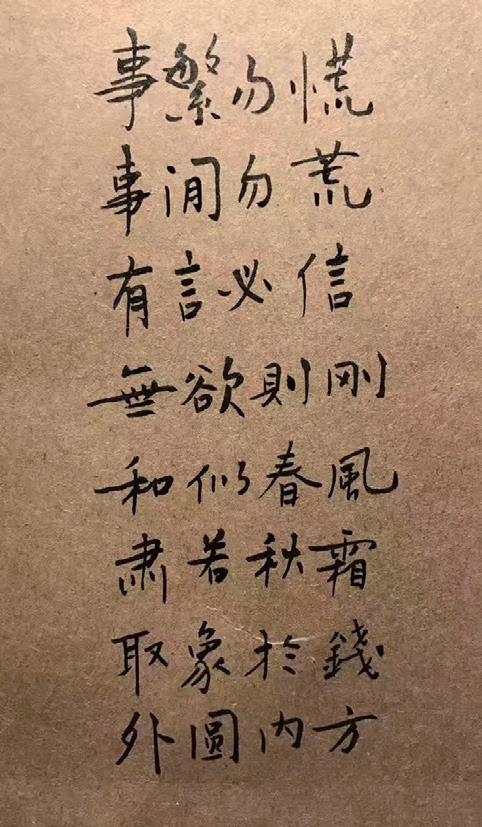 事繁勿慌
事閒勿荒
有言必信
無欲則剛
和似春風
肅若秋霜
取象於錢
外圓內方